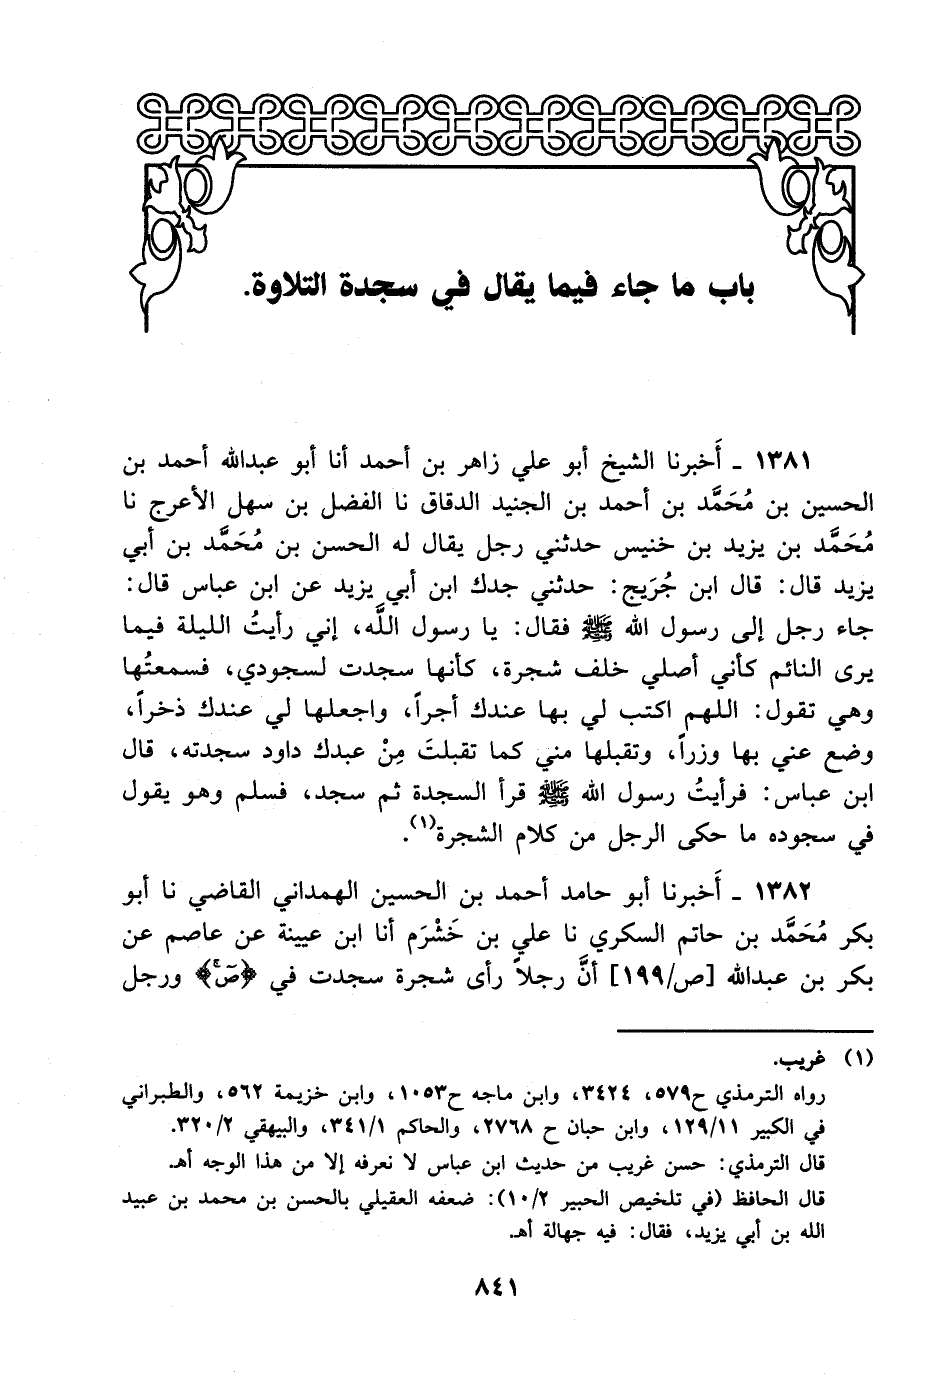 باب ما جاء فيما يقال في سجدة التلاوة.
١٣٨١ - أَخبرنا الشيخ أبو علي زاهر بن أحمد أنا أبو عبدالله أحمد بن
الحسين بن مُحَمَّد بن أحمد بن الجنيد الدقاق نا الفضل بن سهل الأعرج نا
مُحَمَّد بن يزيد بن خنيس حدثني رجل يقال له الحسن بن مُحَمَّد بن أبي
يزيد قال: قال ابن جُرَيج: حدثني جدك ابن أبي يزيد عن ابن عباس قال:
جاء رجل إلى رسول الله ﷺ فقال: يا رسول اللَّه، إني رأيتُ الليلة فيما
يرى النائم كأني أصلي خلف شجرة، كأنها سجدت لسجودي، فسمعتُها
وهي تقول: اللهم اكتب لي بها عندك أجراً، واجعلها لي عندك ذخراً،
وضع عني بها وزراً، وتقبلها مني كما تقبلتَ مِنْ عبدك داود سجدته، قال
ابن عباس: فرأيتُ رسول الله ﷺ قرأ السجدة ثم سجد، فسلم وهو يقول
في سجوده ما حكى الرجل من كلام الشجرة(١).
١٣٨٢ - أَخبرنا أبو حامد أحمد بن الحسين الهمداني القاضي نا أبو
بكر مُحَمَّد بن حاتم السكري نا علي بن خَشْرَم أنا ابن عيينة عن عاصم عن
بكر بن عبدالله [ص/١٩٩] أنَّ رجلاً رأى شجرة سجدت في ﴿صَۤ﴾ ورجل
(١) غريب.
رواه الترمذي ح٥٧٩، ٣٤٢٤، وابن ماجه ح١٠٥٣، وابن خزيمة ٥٦٢، والطبراني
في الكبير ١٢٩/١١، وابن حبان ح ٢٧٦٨، والحاكم ٣٤١/١، والبيهقي ٣٢٠/٢.
قال الترمذي: حسن غريب من حديث ابن عباس لا نعرفه إلا من هذا الوجه أهـ.
قال الحافظ (في تلخيص الحبير ١٠/٢): ضعفه العقيلي بالحسن بن محمد بن عبيد
الله بن أبي يزيد، فقال: فيه جهالة أهـ.
٨٤١